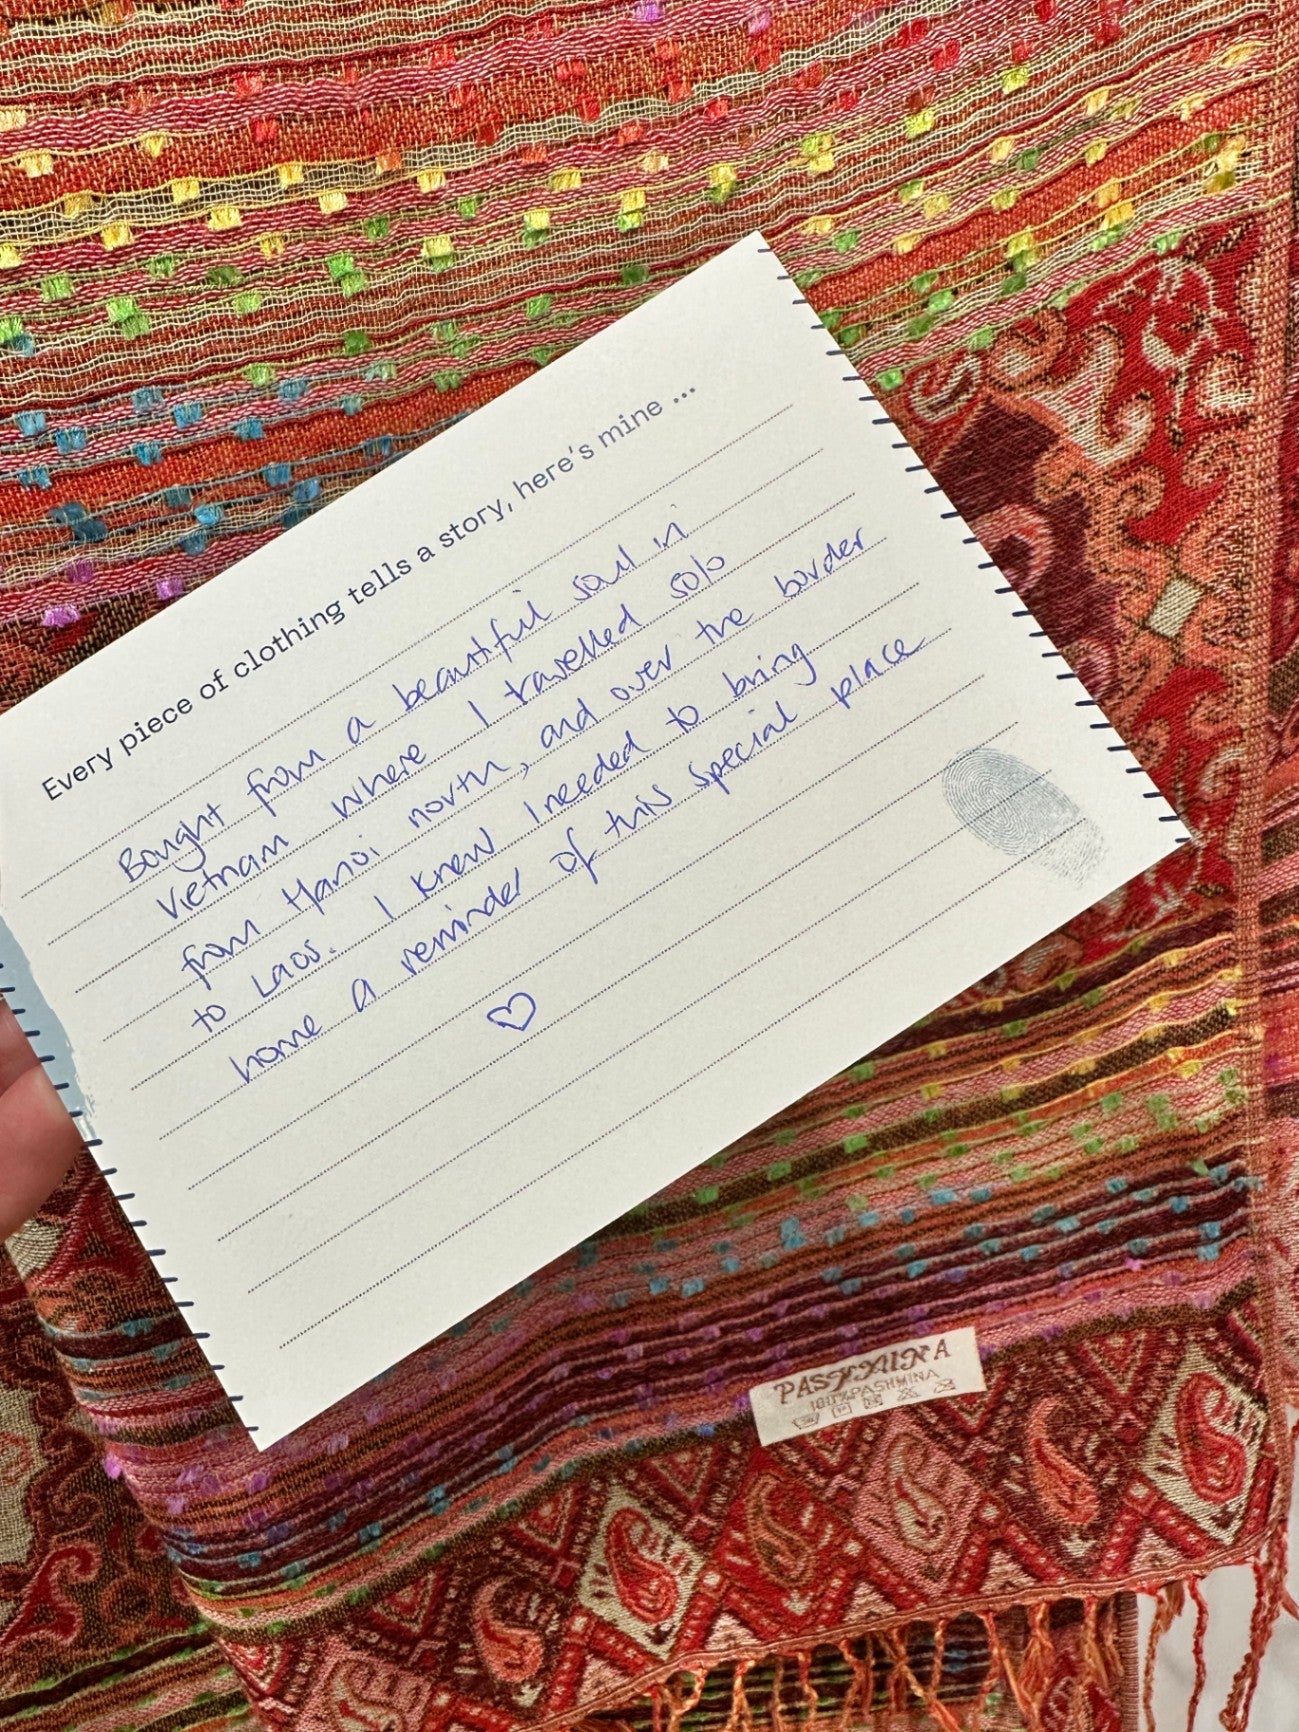 Every piece of clothing tells a story, here's mine ...
Bought from a beautiful soul in
Vietnam where I travelled solo
from Hanoi north, and over the border
to Laos. I knew I needed to bring
home a reminder of this special place
♡
PASHMINA
100% PASHMINA